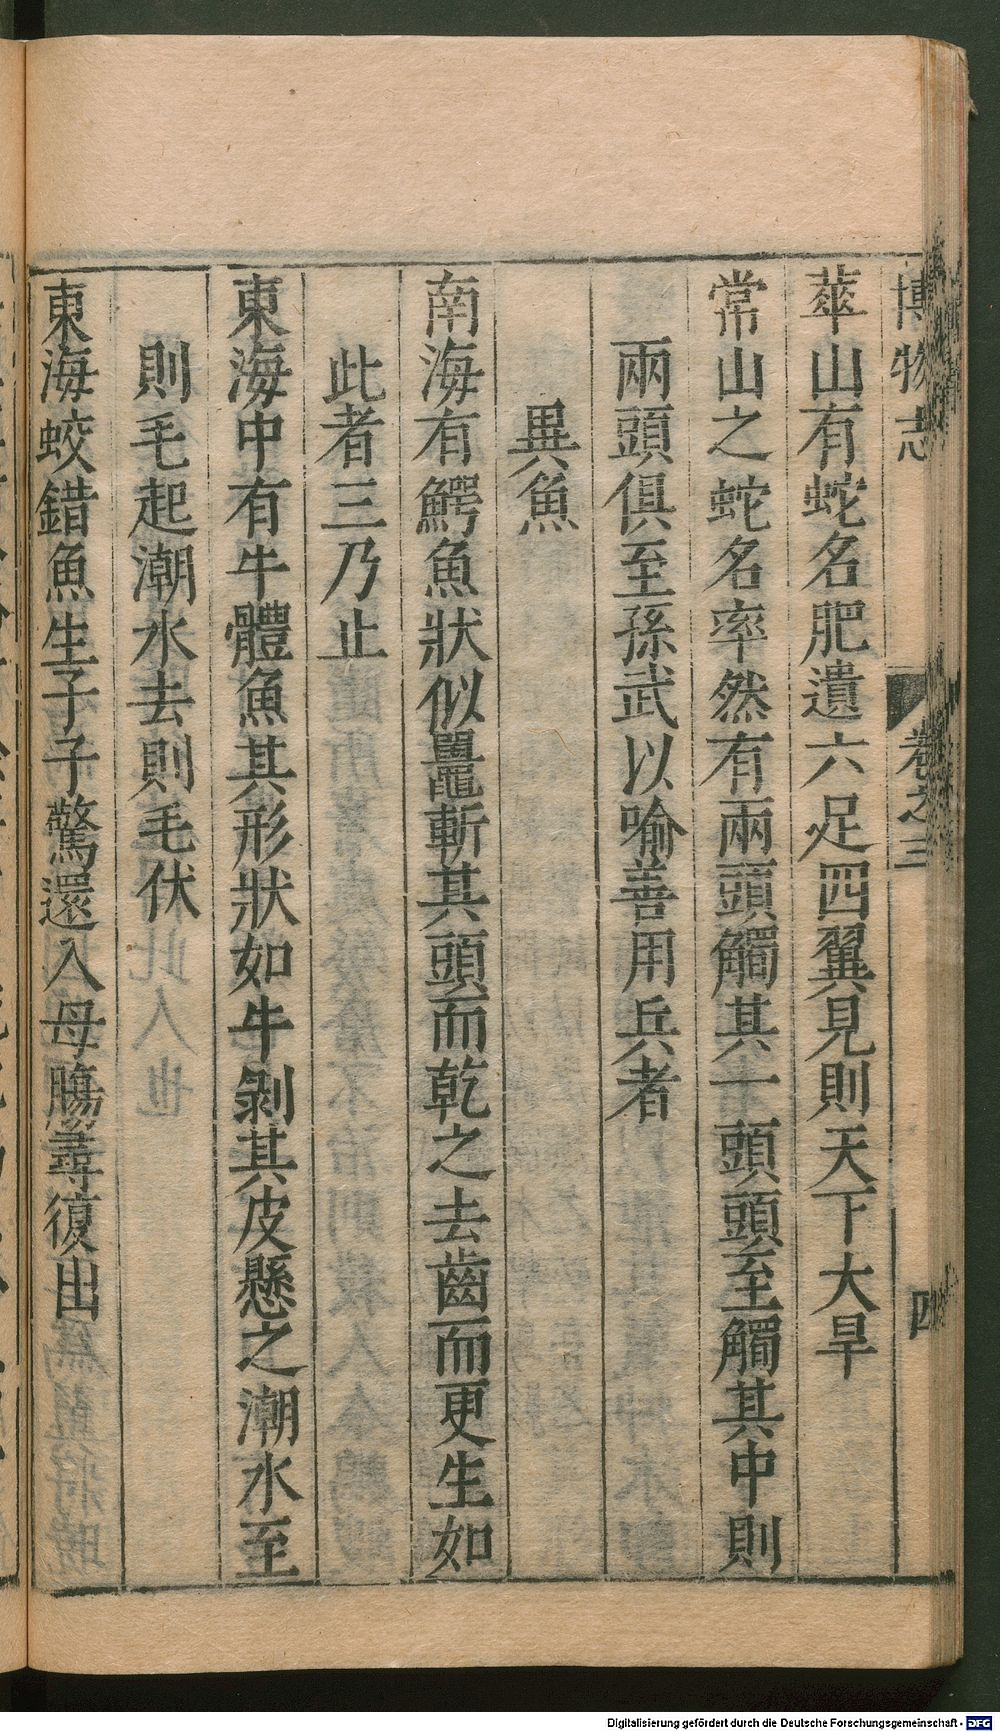 博物志 卷之三 四
華山有蛇名肥遺六足四翼見則天下大旱
常山之蛇名率然有兩頭觸其一頭頭至觸其中則
兩頭俱至孫武以喻善用兵者
異魚
南海有鰐魚狀似鼉斬其頭而乾之去齒而更生如
此者三乃止
東海中有牛體魚其形狀如牛剝其皮懸之潮水至
則毛起潮水去則毛伏
東海蛟錯魚生子子驚還入母腸尋復出
Digitalisierung gefördert durch die Deutsche Forschungsgemeinschaft - DFG